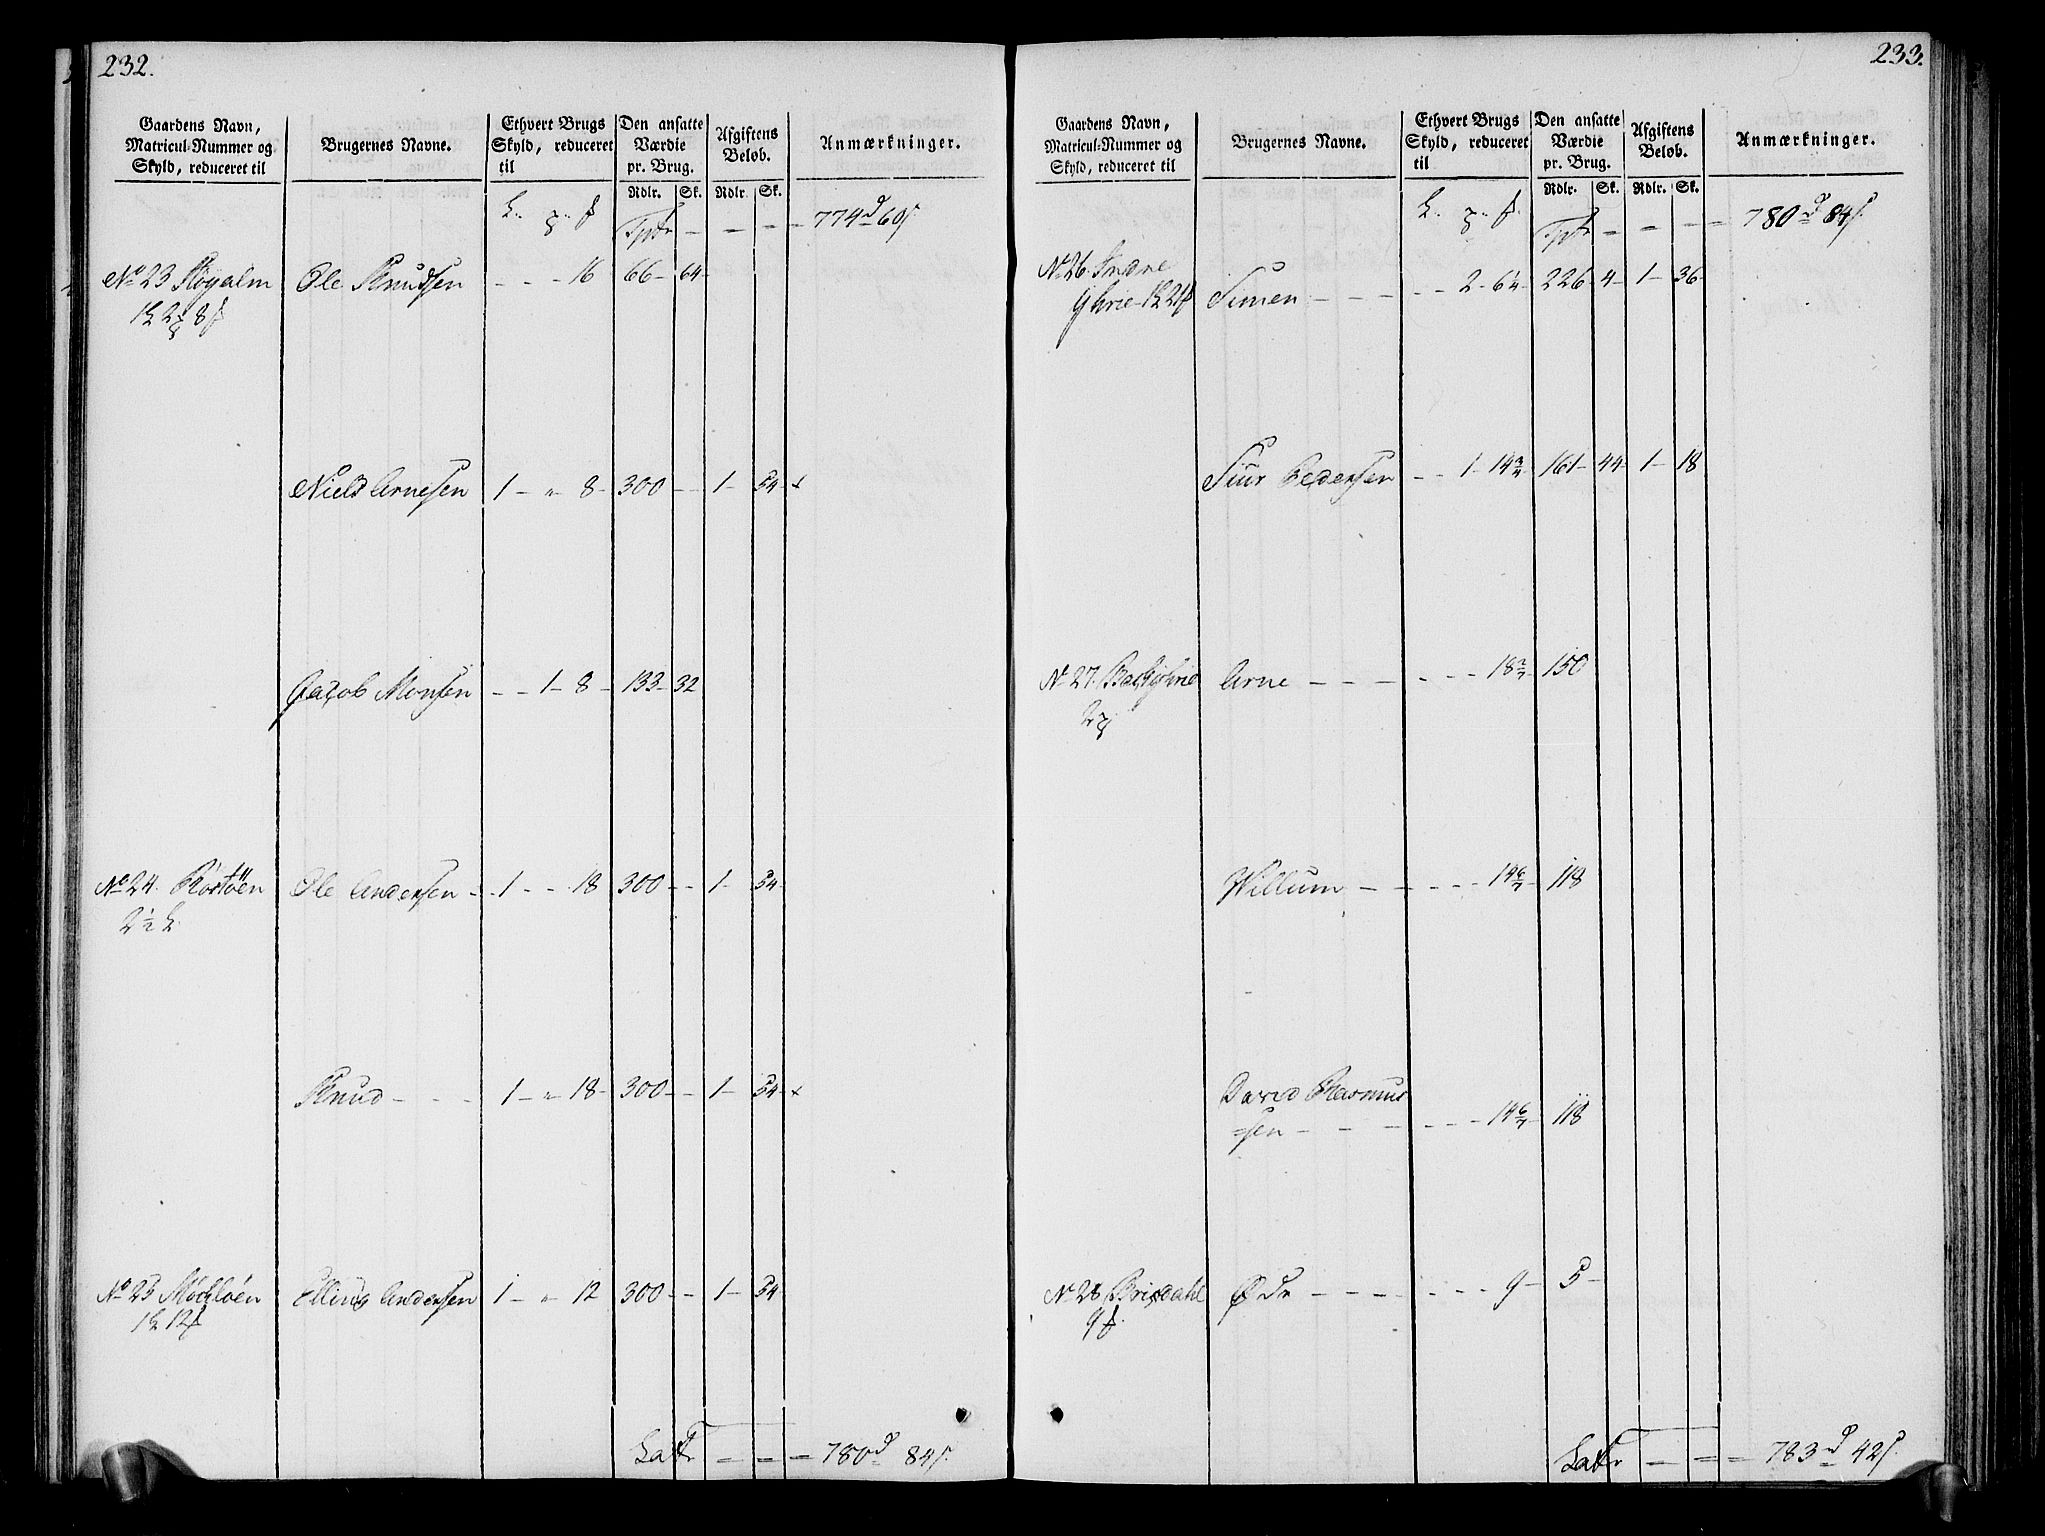 232.
Gaardens Navn, Matricul-Nummer og Skyld, reduceret til
Brugernes Navne.
Ethvert Brugs Skyld, reduceret til
Den ansatte Værdie pr. Brug.
Afgiftens Beløb.
Anmærkninger.
Rdlr. Sk. Rdlr. Sk.
Tptr - - - - 774 d 60 s
No 23 Röyalm Ole Knudsen - - - 16 66 - 64 -
Niels Arnesen 1 - " 8 - 300 - - 1 - 54 - x
Jacob Monsen - - 1 - 8 - 133 - 32
No 24. Rörtöen Ole Andersen - 1 - - 18 300 - - 1 - 54
2 1/2
Knud - - - 1 - " 18 - 300 - - 1 - 54 - x
No 25 Elling Andersen 1 - " 12 300 - - 1 - 54
Latr - - - 780 d 84 s
233.
Gaardens Navn, Matricul-Nummer og Skyld, reduceret til
Brugernes Navne.
Ethvert Brugs Skyld, reduceret til
Den ansatte Værdie pr. Brug.
Afgiftens Beløb.
Anmærkninger.
Rdlr. Sk. Rdlr. Sk.
Tptr - - - - 780 d 84 s
No 26. Indre Simen - - - - - 2 - 6 2/4 - 226 - 4 - 1 - 36
Siur Pedersen - - 1 - 14 2/4 161 - 44 - 1 - 18
No 27. Arne - - - - - - - 18 2/7 150
2
Willum - - - - - 14 6/7 118
David Rasmus
=sen - - - - - - 14 6/7 118
No 28 Brisdahl Öde - - - - - - - 9 - 5 -
9
Latr - - - 783 d 42 s